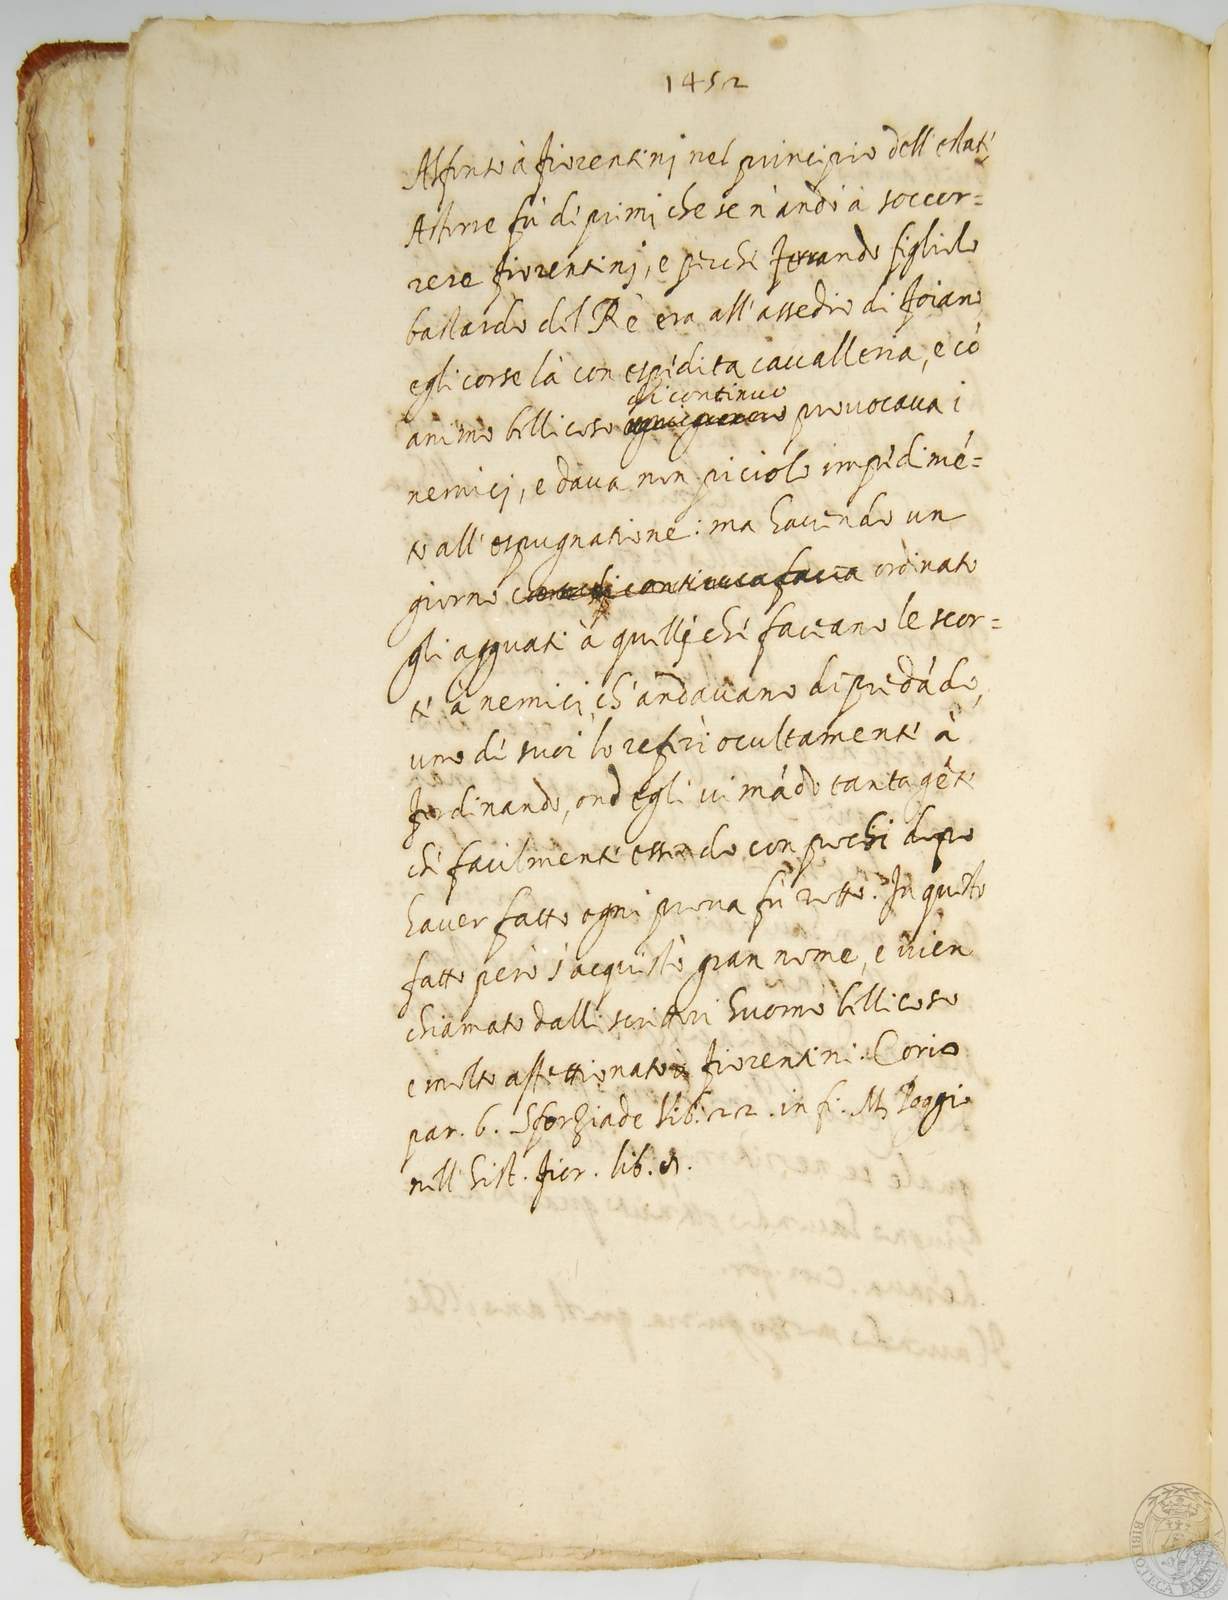 1452
Alfonso à fiorentinj nel principio dell'estate,
Astorre fù dé primi che se n'andò à soccor=
rere fiorentinj, e perché ferrando figliolo
bastardo del Rè era all'assedio di foiano
egli corse là con espedita cavalleria, e cõ
di continuo
animo bellicoso provocaua i
nemicj, e daua non piciolo impedimẽ=
to all'espugnatione: ma hauendo un
giorno continuua facea ordinato
gli agguati à quellj ché faceano le scor=
te à nemici ch'andauano depredãdo,
uno dé suoi lo referì ocultamente à
ferdinando, ond'egli ui mãdò tanta gẽte
ché facilmente essendo con pochi dopo
hauer fatto ogni proua fù rotto. In questo
fatto però s'acquistò gran nome, e uien
chiamato dalli scrittori huomo bellicoso
e molto affettionato à fiorentini. Corio
par. 6. Sforziade lib. 22. in fi. M. Poggio
nell'hist. fior. lib.
BIBLIOTECA